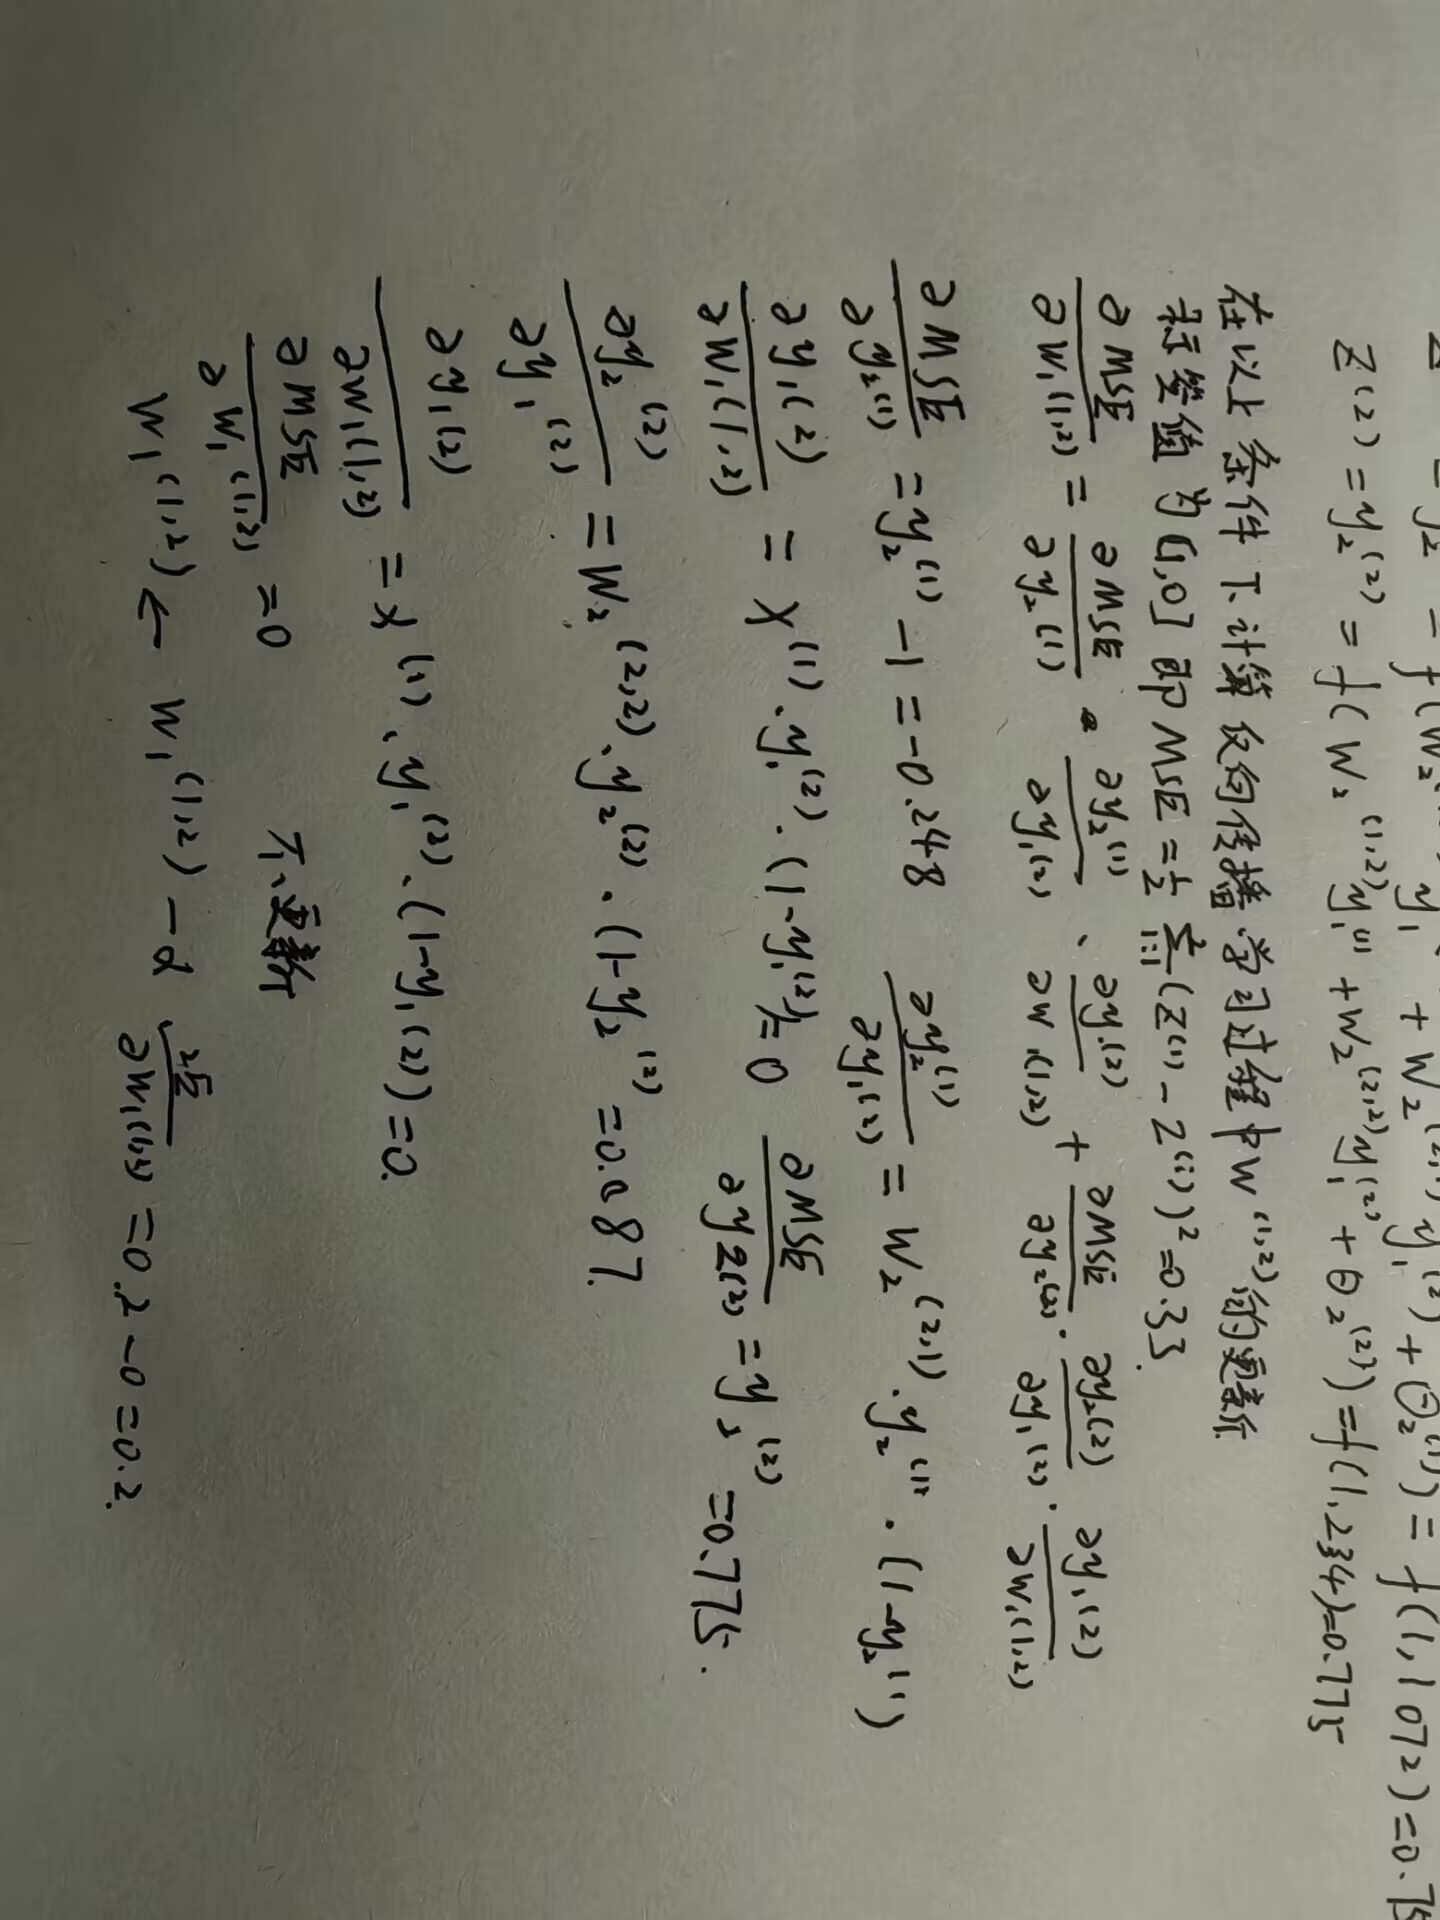 = f(W₂ y₁ + W₂⁽²,¹⁾y₁⁽²⁾ + θ₂⁽¹⁾) = f(1,1072) = 0.75
Z(2) = y₂⁽²⁾ = f(W₂⁽¹,²⁾y₁⁽¹⁾ + W₂⁽²,²⁾y₁⁽²⁾ + θ₂⁽²⁾) = f(1,234) = 0.775
在以上条件下计算反向传播学习过程中W⁽¹,²⁾的更新
标签值为[1,0] 即 MSE = ½ Σ(Z⁽ⁱ⁾ - Z⁽ⁱ⁾)² = 0.33.
∂MSE/∂W₁(1,2) = ∂MSE/∂y₂(1) · ∂y₂(1)/∂y₁(2) · ∂y₁(2)/∂W₁(1,2) + ∂MSE/∂y₂(2) · ∂y₂(2)/∂y₁(2) · ∂y₁(2)/∂W₁(1,2)
∂MSE/∂y₂(1) = y₂⁽¹⁾ - 1 = -0.248 ∂y₂⁽¹⁾/∂y₁(2) = W₂⁽²,¹⁾ · y₂⁽¹⁾ · (1-y₂⁽¹⁾)
∂y₁(2)/∂W₁(1,2) = x⁽¹⁾ · y₁⁽²⁾ · (1-y₁⁽²⁾) = 0 ∂MSE/∂y2(2) = y₂⁽²⁾ = 0.775.
∂y₂⁽²⁾/∂y₁⁽²⁾ = W₂⁽²,²⁾ · y₂⁽²⁾ · (1-y₂⁽²⁾) = 0.087.
∂y₁(2)/∂W₁(1,2) = x⁽¹⁾ · y₁⁽²⁾ · (1-y₁(2)) = 0.
∂MSE/∂W₁(1,2) = 0 不更新
W₁(1,2) ← W₁(1,2) - α = 0.2 - 0 = 0.2.